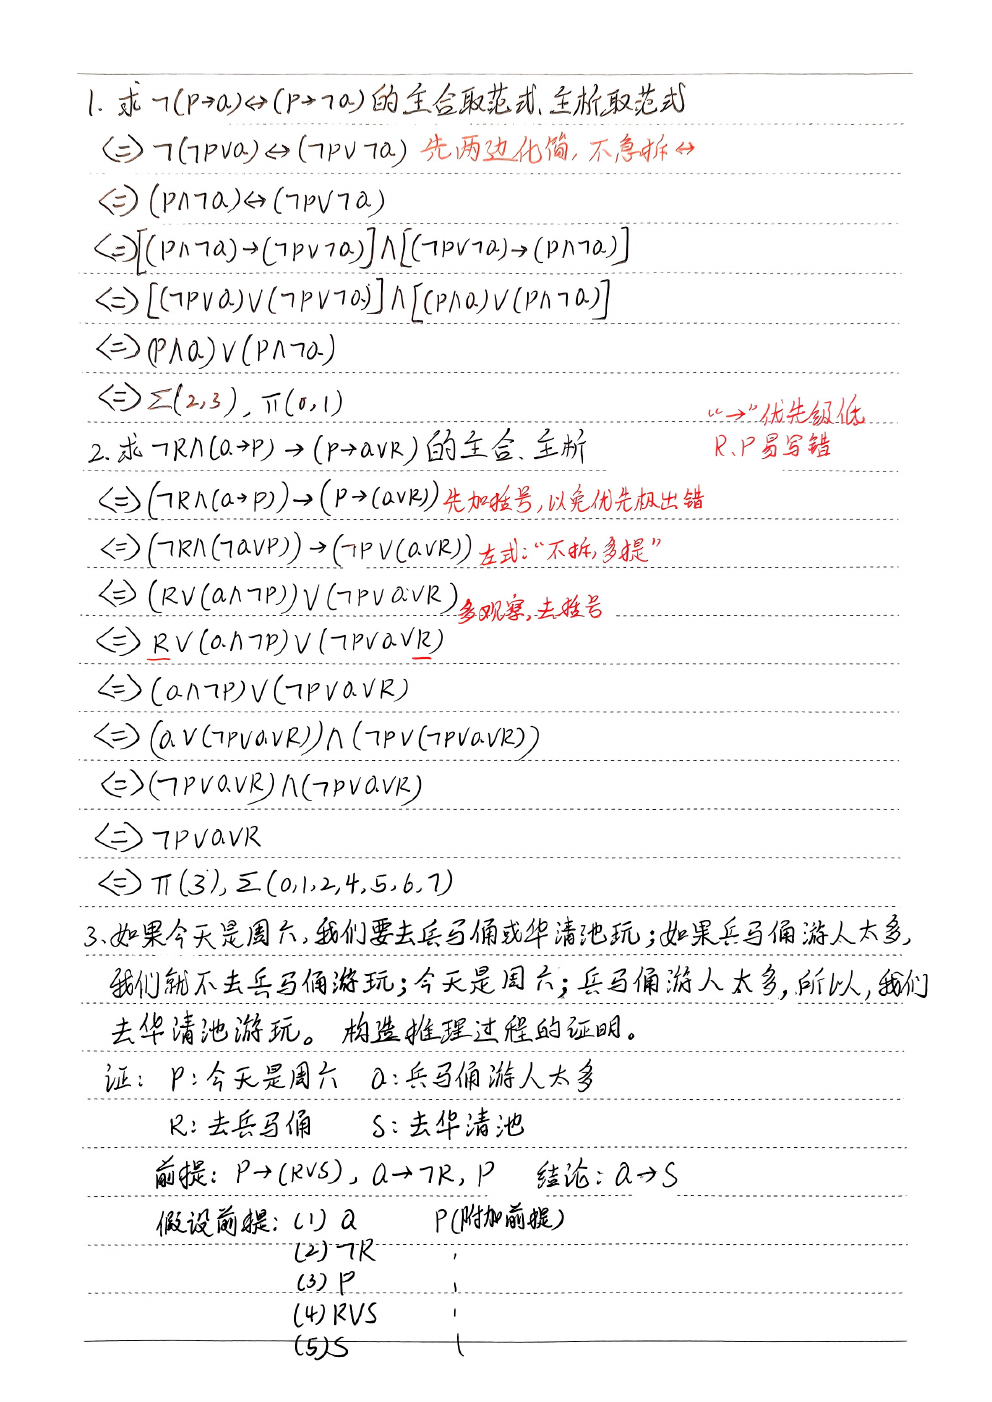 1. 求 ¬(P→Q)↔(P→¬Q)的主合取范式、主析取范式
<=> ¬(¬P∨Q)↔(¬P∨¬Q) 先两边化简, 不急拆↔
<=> (P∧¬Q)↔(¬P∨¬Q)
<=> [(P∧¬Q)→(¬P∨¬Q)]∧[(¬P∨¬Q)→(P∧¬Q)]
<=> [(¬P∨Q)∨(¬P∨¬Q)]∧[(P∧Q)∨(P∧¬Q)]
<=> (P∧Q)∨(P∧¬Q)
<=> Σ(2,3), π(0,1)
“→”优先级低
R、P易写错
2. 求 ¬R∧(Q→P)→(P→Q∨R) 的主合、主析
<=> (¬R∧(Q→P))→(P→(Q∨R)) 先加括号,以免优先极出错
<=> (¬R∧(¬Q∨P))→(¬P∨(Q∨R)) 左式:“不拆,多提”
<=> (R∨(Q∧¬P))∨(¬P∨Q∨R) 多观察,去括号
<=> R∨(Q∧¬P)∨(¬P∨Q∨R)
<=> (Q∧¬P)∨(¬P∨Q∨R)
<=> (Q∨(¬P∨Q∨R))∧(¬P∨(¬P∨Q∨R))
<=> (¬P∨Q∨R)∧(¬P∨Q∨R)
<=> ¬P∨Q∨R
<=> π(3), Σ(0,1,2,4,5,6,7)
3. 如果今天是周六,我们要去兵马俑或华清池玩;如果兵马俑游人太多,
我们就不去兵马俑游玩;今天是周六;兵马俑游人太多,所以,我们
去华清池游玩。 构造推理过程的证明。
证: P:今天是周六 Q:兵马俑游人太多
R:去兵马俑 S:去华清池
前提: P→(R∨S), Q→¬R, P 结论: Q→S
假设前提: (1) Q P(附加前提)
(2) ¬R
(3) P
(4) R∨S
(5) S